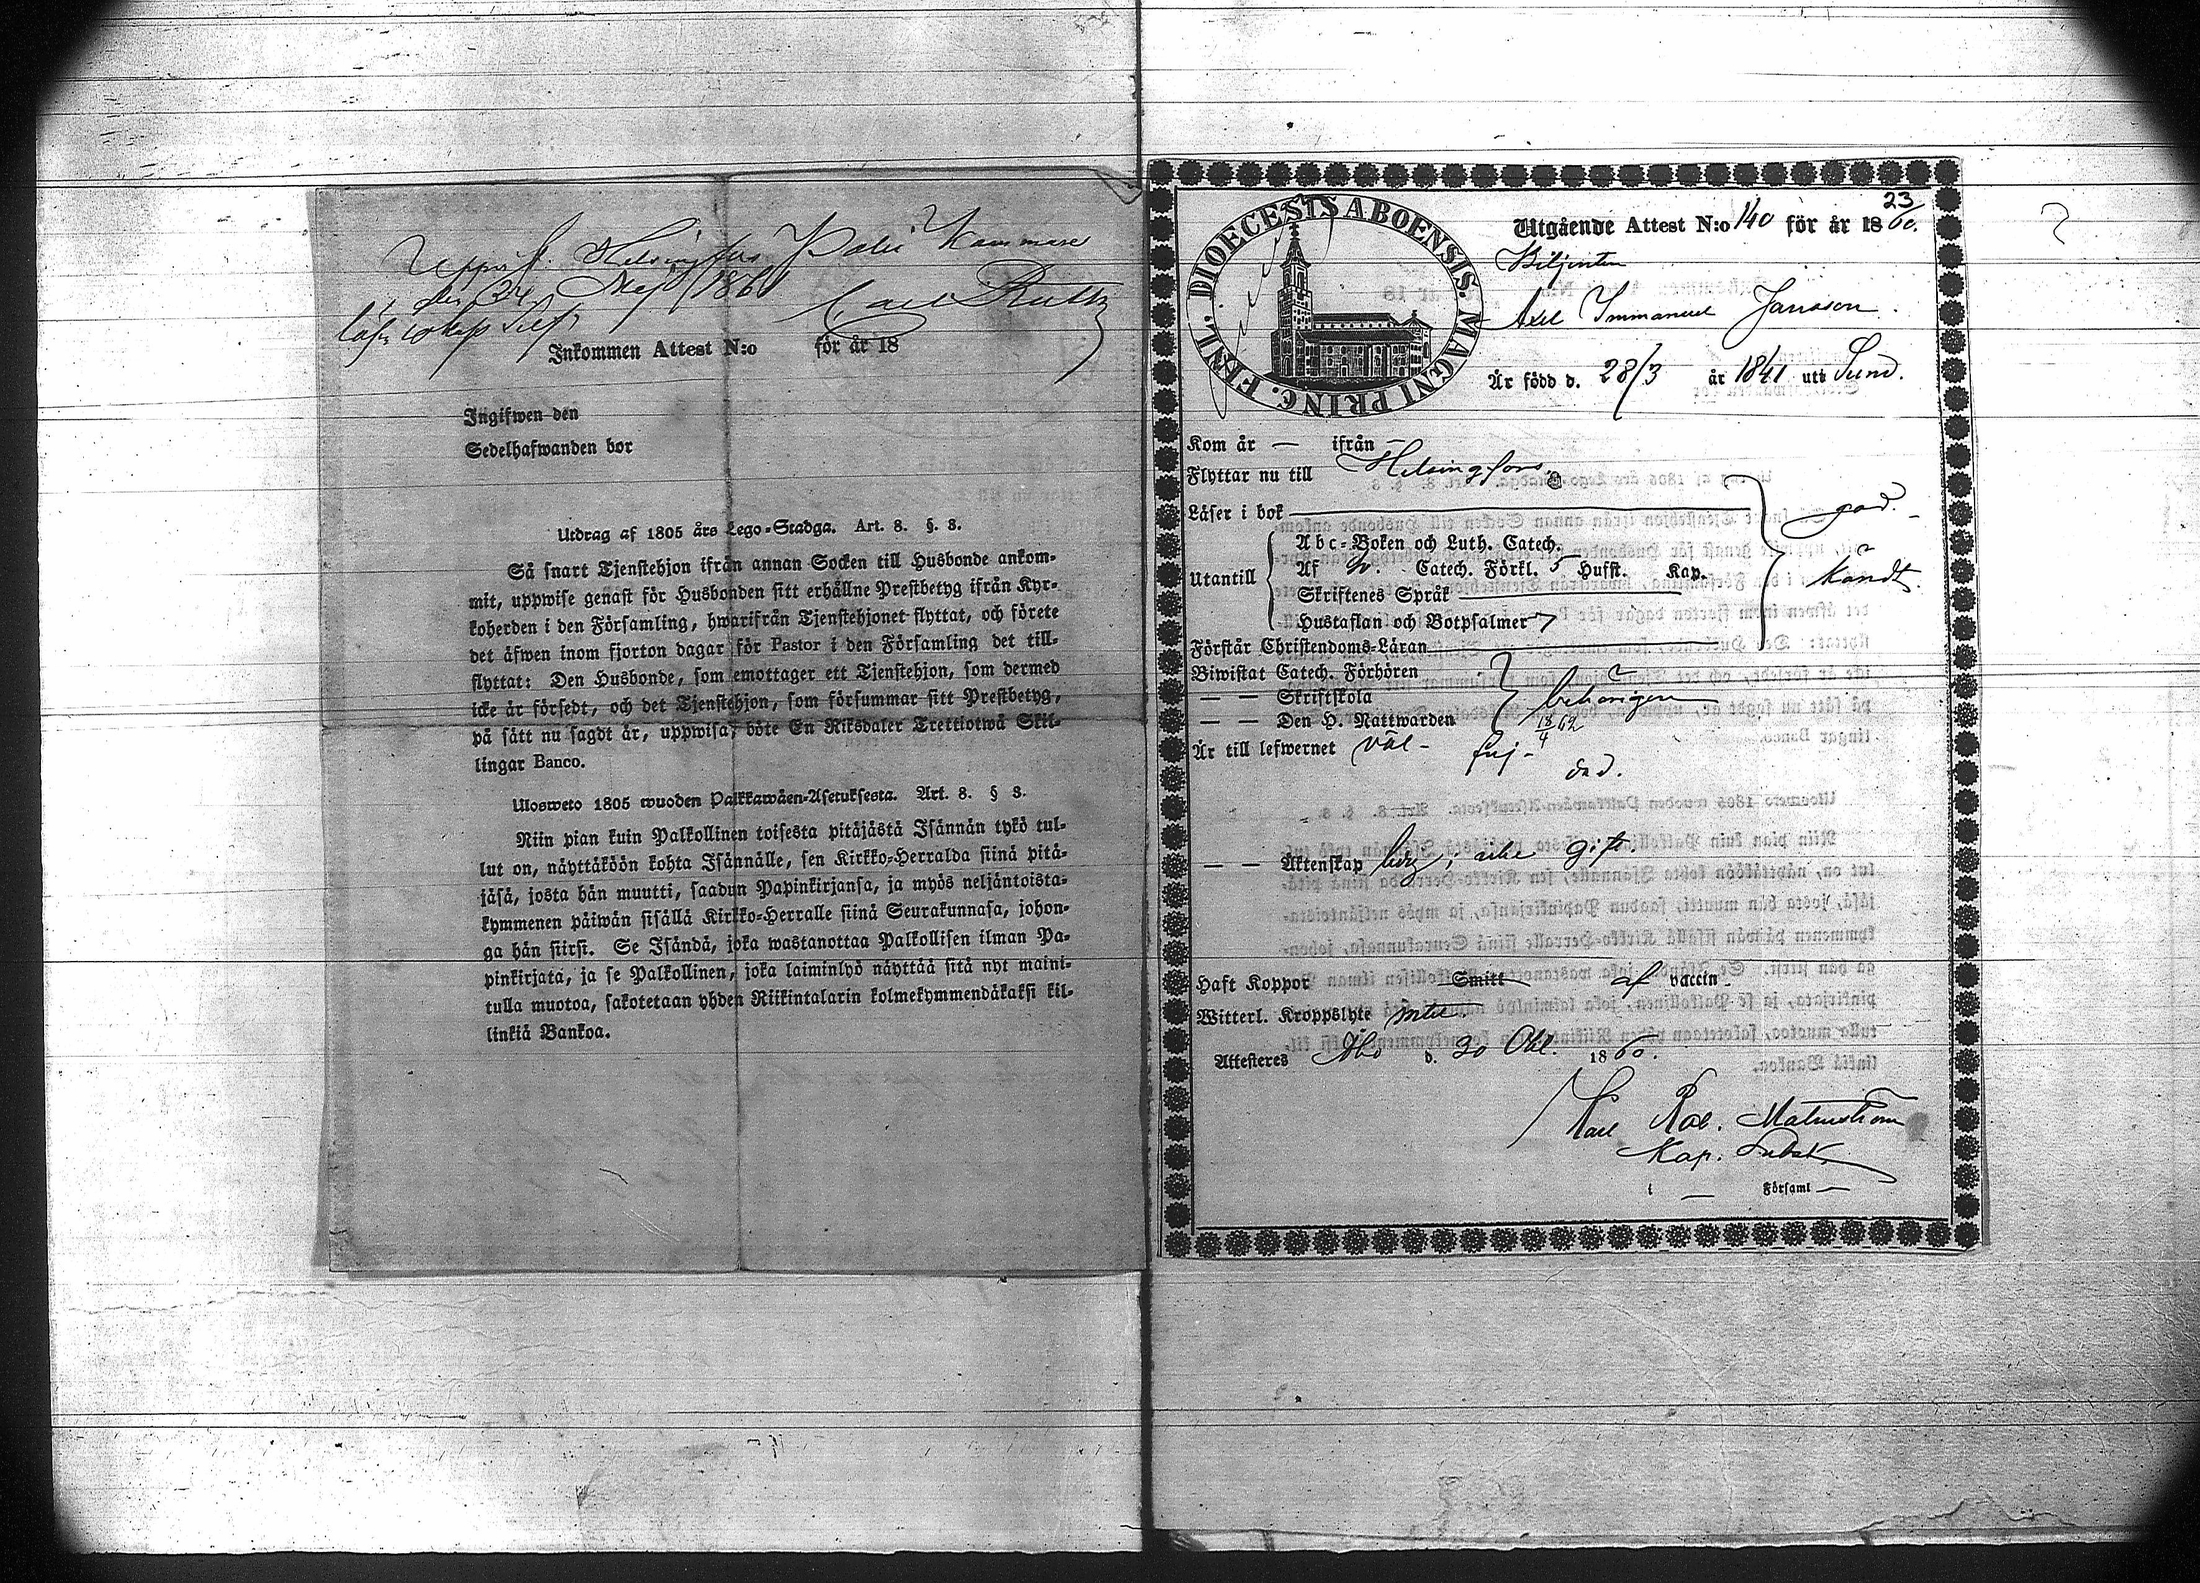 Uppv. i Helsingfors Polis Kammare
den 24 Maj 1861 Carl
Inkommen Attest N:o för år 18
Ingifwen den
Sedelhafwanden bor
Utdrag af 1805 års Lego-Stadga. Art. 8. §. 8.
Så snart Tjenstehjon ifrån annan Socken till Husbonde ankom-
mit, uppwise genast för Husbonden sitt erhållne Prestbetyg ifrån Kyr-
koherden i den Församling, hwarifrån Tjenstehjonet flyttat, och förete
det äfwen inom fjorton dagar för Pastor i den Församling det till-
flyttat: Den Husbonde, som emottager ett Tjenstehjon, som dermed
icke är försedt, och det Tjenstehjon, som försummar sitt Prestbetyg,
på sätt nu sagdt är, uppwisa, böte En Riksdaler Trettiotwå Skil-
lingar Banco.
Ulosweto 1805 wuoden Palkkawäen-Asetuksesta. Art. 8. § 8.
Niin pian kuin Palkollinen toisesta pitäjästä Isännän tykö tul-
lut on, näyttäköön kohta Isännälle, sen Kirkko-Herralda siinä pitä-
jäsä, josta hän muutti, saadun Papinkirjansa, ja myös neljäntoista-
kymmenen päiwän sisällä Kirkko-Herralle siinä Seurakunnasa, johon-
ga hän siirsi. Se Isändä, joka wastanottaa Palkollisen ilman Pa-
pinkirjata, ja se Palkollinen, joka laiminlyö näyttää sitä nyt maini-
tulla muotoa, sakotetaan yhden Riikintalarin kolmekymmendäkaksi kil-
linkiä Bankoa.
23
DIOECESIS ABOENSIS. MAGNI PRINC. FINL.
Utgående Attest N:o 140 för år 1860.
Axel Immanuel Jansson.
Är född d. 28/3 år 1841 uti Sund.
Kom år — ifrån —
Flyttar nu till Helsingfors.
Läser i bok god.
Utantill
Abc-Boken och Luth. Catech.
Af Catech. Förkl. 5 Husst. Kap. kändt.
Skriftenes Språk
Hustaflan och Botpsalmer 7
Förstår Christendoms-Läran
Biwistat Catech. Förhören
— — Skriftskola behörigen
— — Den H. Nattwarden
Är till lefwernet väl- frej-
dad.
— — Äktenskap icke gift
Haft Koppor Smitt af vaccin-
Witterl. Kroppslyte intet
Attesteres Åbo d. 30 Okt. 1860.
Karl Rob. Malmström
Kap. Subst.
i — Församl —